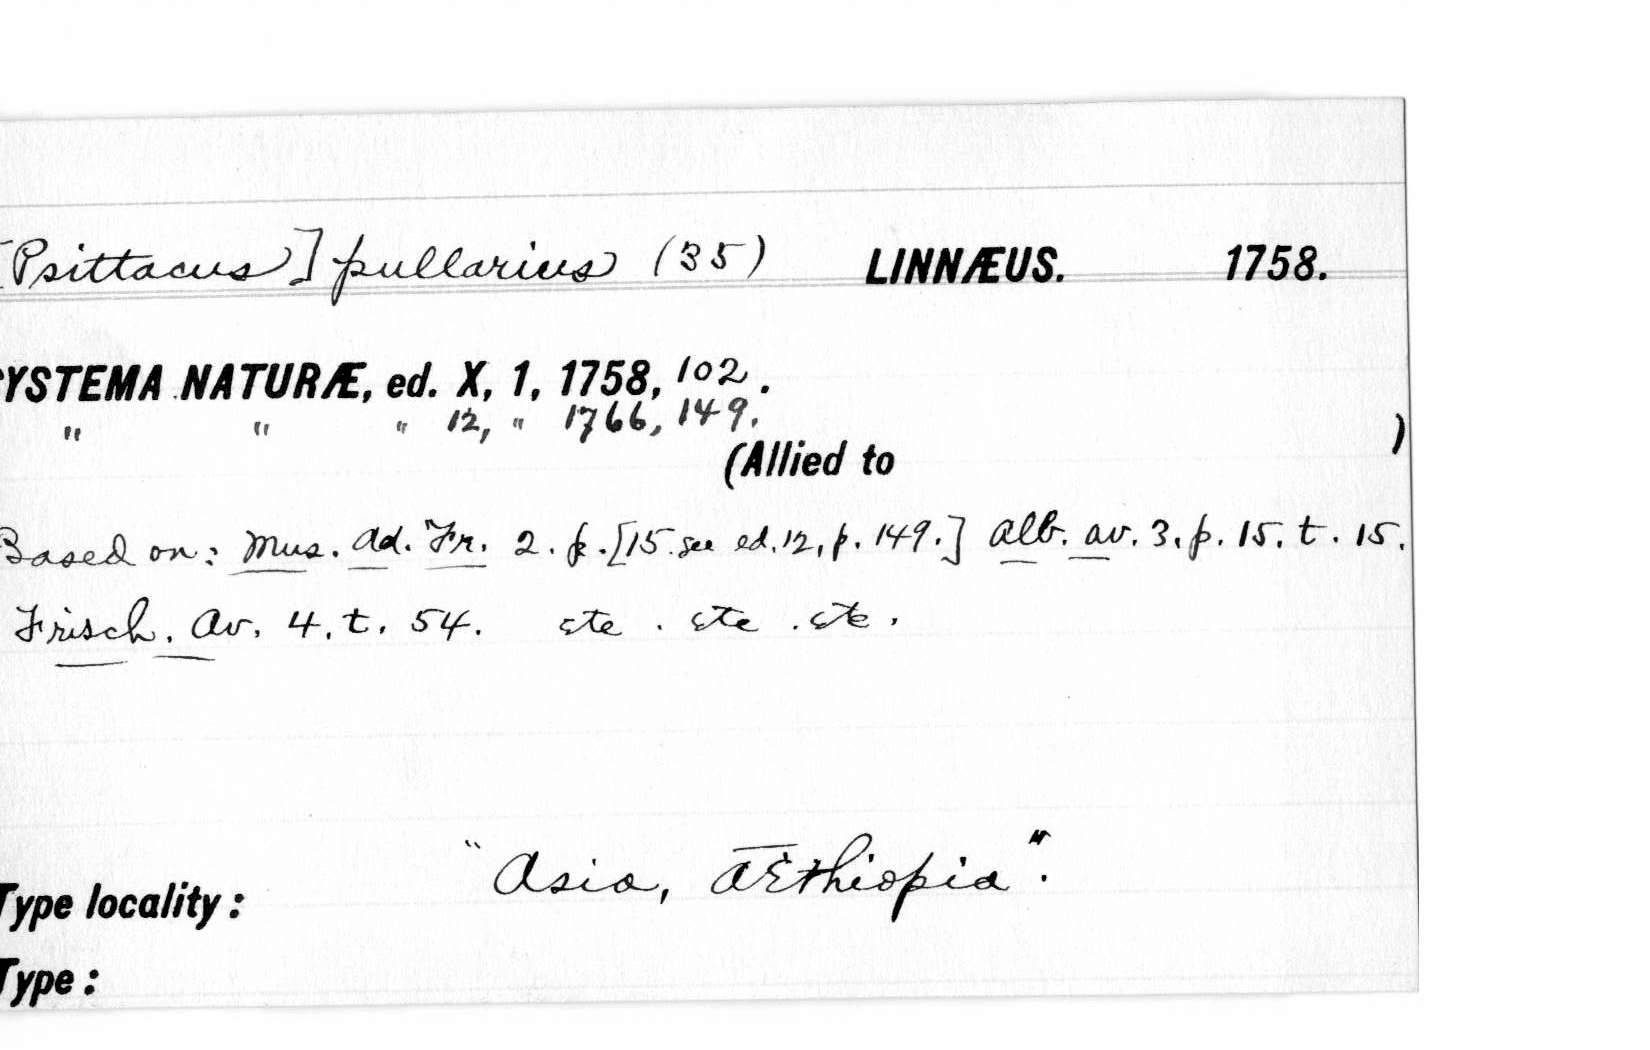 [Psittacus] pullarius (35) LINNÆUS. 1758.
SYSTEMA NATURÆ, ed. X, 1, 1758, 102.
" " " 12, " 1766, 149.
(Allied to )
Based on: Mus. Ad. Fr. 2. p. [15. see ed. 12, p. 149.] Alb. av. 3. p. 15. t. 15.
Frisch. Av. 4. t. 54. etc. etc. etc.
Type locality: "Asia, Æthiopia".
Type: